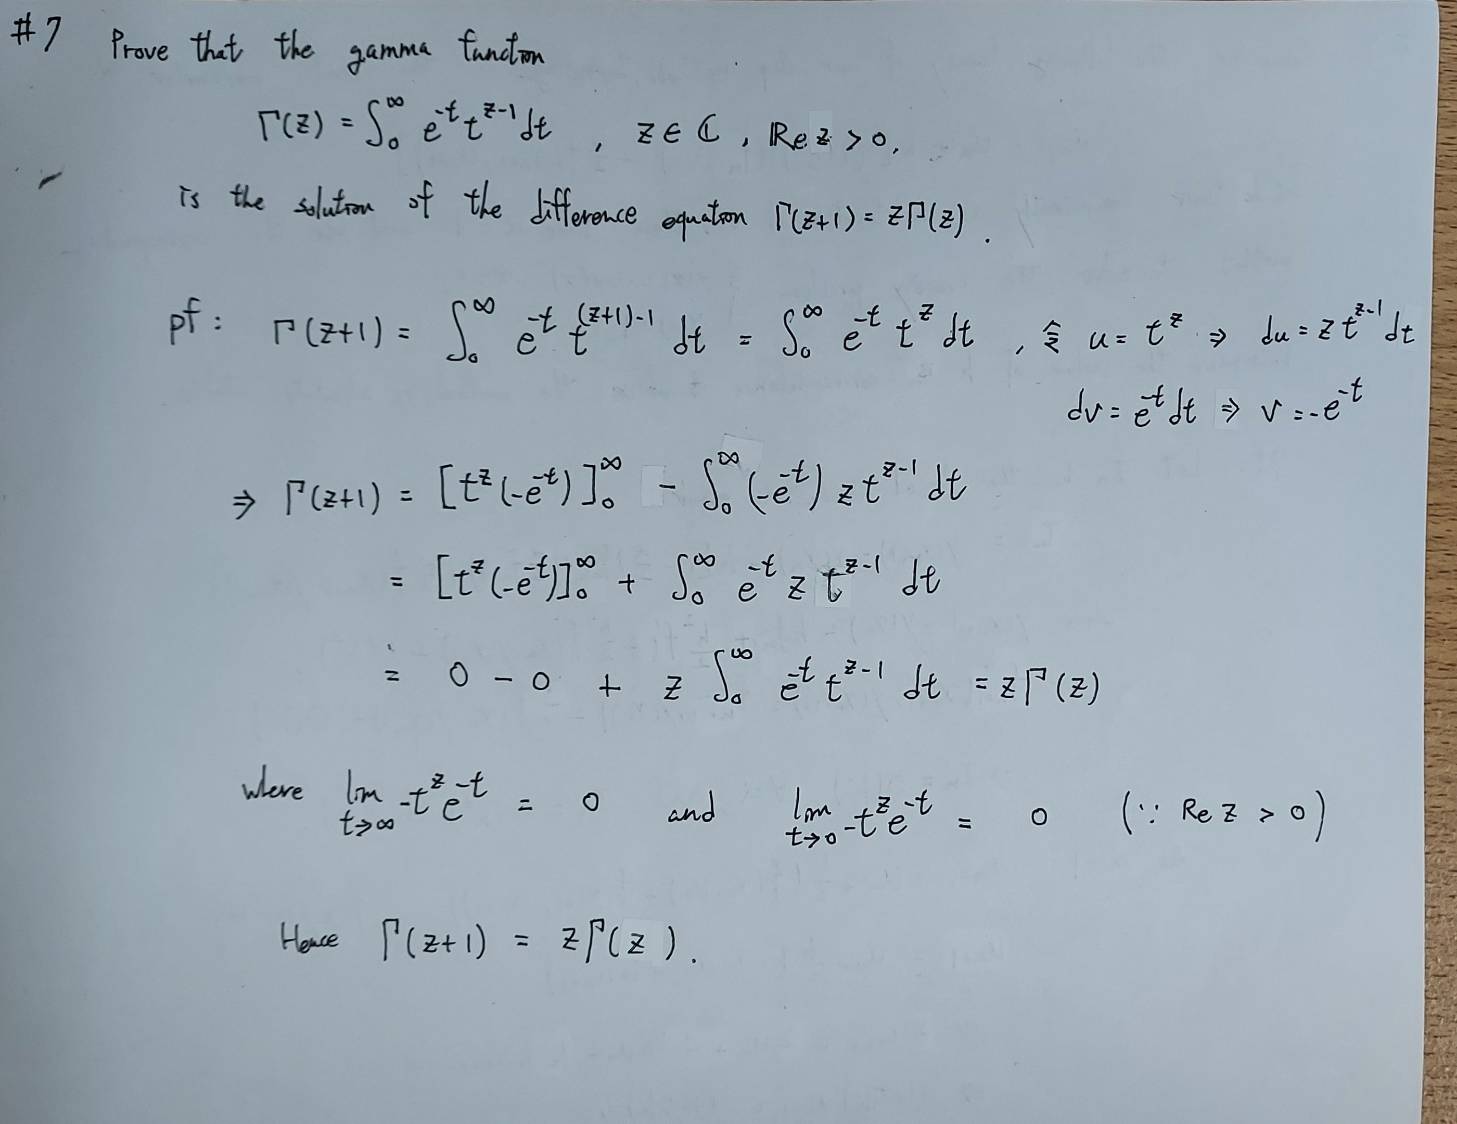 #7 Prove that the gamma function
Γ(z) = ∫₀^∞ e^{-t} t^{z-1} dt , z ∈ ℂ , Re z > 0,
is the solution of the difference equation Γ(z+1) = zΓ(z).
pf: Γ(z+1) = ∫₀^∞ e^{-t} t^{(z+1)-1} dt = ∫₀^∞ e^{-t} t^z dt , 令 u = t^z ⇒ du = z t^{z-1} dt
dv = e^{-t} dt ⇒ v = -e^{-t}
⇒ Γ(z+1) = [t^z (-e^{-t})]₀^∞ - ∫₀^∞ (-e^{-t}) z t^{z-1} dt
= [t^z (-e^{-t})]₀^∞ + ∫₀^∞ e^{-t} z t^{z-1} dt
= 0 - 0 + z ∫₀^∞ e^{-t} t^{z-1} dt = zΓ(z)
where lim_{t→∞} -t^z e^{-t} = 0 and lim_{t→0} -t^z e^{-t} = 0 (∵ Re z > 0)
Hence Γ(z+1) = zΓ(z).